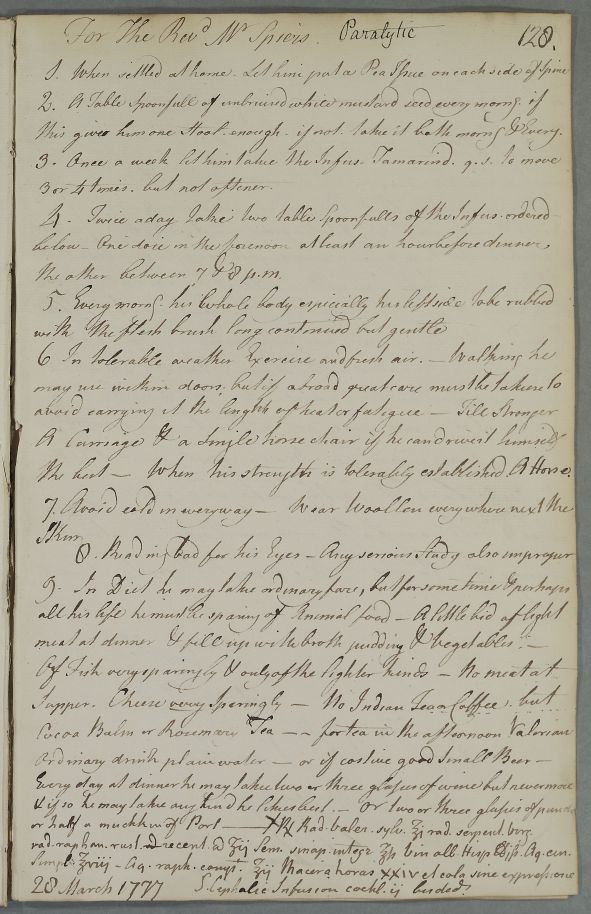 For The Revd Mr Spiers. Paralytic 128.
1. When settled at home. Let him put a Pea Issue on each side of Spine
2. A Table Spoonfull of unbruised white mustard seed every morng. if
this gives him one Stool. enough. if not. take it both morng & Eveng.
3. Once a week let him take the Infus. Tamarind. q. s. to move
3 or 4 times. but not oftener.
4. Twice a day take two table Spoonfulls of the Infus. ordered
below – One dose in the forenoon at least an hour before dinner,
the other between 7 & 8 p.m.
5. Every morng. his whole body especially his left side to be rubbed
with the flesh brush long continued but gentle
6 In tolerable weather Exercise and fresh air. – Walking he
may use within doors, but if abroad great care must be taken to
avoid carrying it the length of heat or fatigue – Till Stronger
A Carriage & a single horse chair if he can drive it himself
the best – When his strength is tolerably established. A Horse.
7. Avoid cold in every way – Wear Woollen every where next the
Skin
8. Reading bad for his Eyes – Any serious Study also improper
9. In Diet he may take ordinary fare, but for some time & perhaps
all his life he must be sparing of Animal food – A little bid of light
meat at dinner & fill up with broth pudding & Vegetables. –
Of Fish very sparingly & only of the lighter kinds – No meat at
Supper. Cheese very sparingly – No Indian Tea or Coffee, but
Cocoa Balm or Rosemary Tea – – for tea in the afternoon Valerian
Ordinary drink plain water – or if costive good Small Beer –
Every day at dinner he may take two or three glasses of wine but never more
& if so he may take any kind he likes best. – Or two or three glasses of punch
or half a mutchkin of Port – X ℞ Rad. valer. sylv. ℥j rad. serpent. virg.
rad. raphan. rust. recent. ʒij Sem. sinap. integr. ℥ß Vin. alb. Hisp. Aq. cin.
Simpl. ℥viij – Aq. raph. compt. ℥ij Macera horas XXIV et cola sine expressione
28 March 1777 S. Cephalic Infusion cochl. ij bis de d.